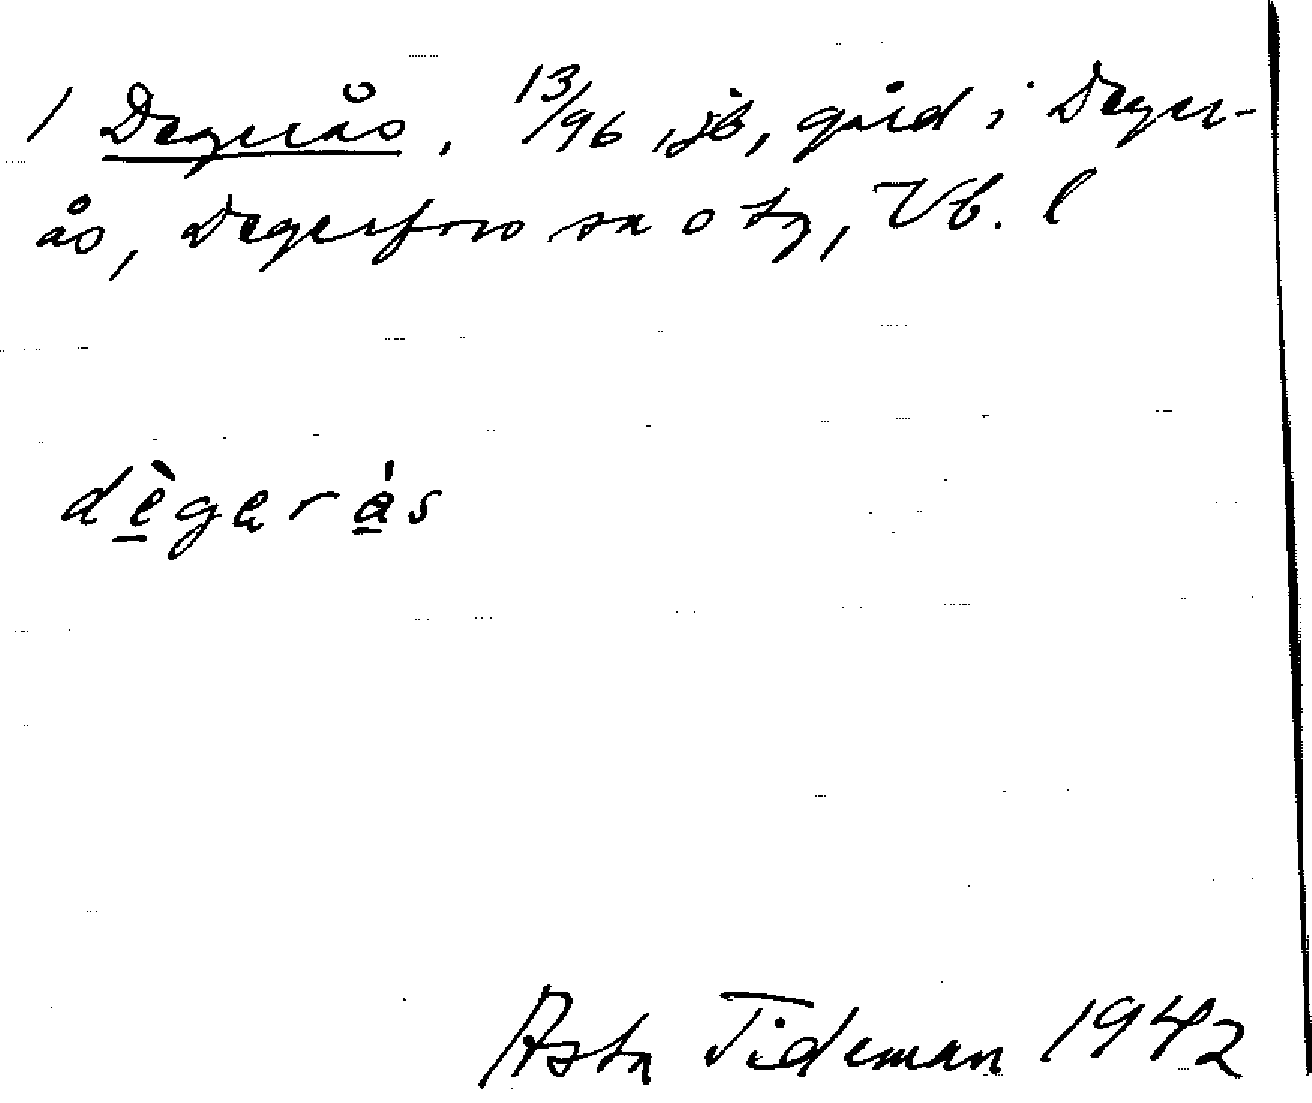 1 Degerås, 13/96, jb, gård i Deger-
ås, Degerfors sn o tg, Vb. l
dègęrás
Asta Tideman 1942